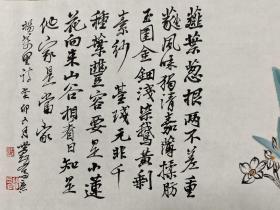 薤葉葱根两不差重
蕤風味獨清嘉薄揉肪
玉围金鈿淺染鵝黄剩
素紗臺琖元非千
種葉豐容要是小蓮
花向來山谷相看日知是
他家是當家
楊萬里詩癸卯六月